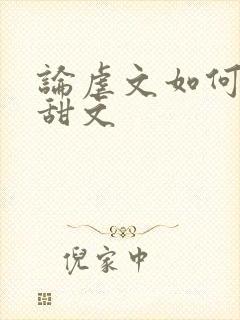 論虐文如何
甜文
倪家中